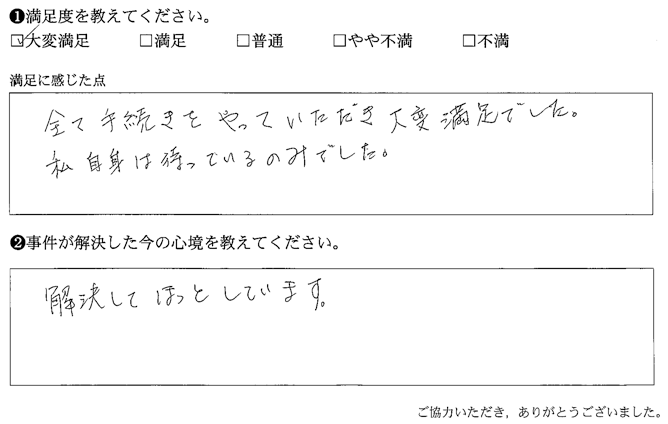 ❶満足度を教えてください。
☑大変満足 □満足 □普通 □やや不満 □不満
満足に感じた点
全て手続きをやっていただき大変満足でした。
私自身は待っているのみでした。
❷事件が解決した今の心境を教えてください。
解決してほっとしています。
ご協力いただき，ありがとうございました。